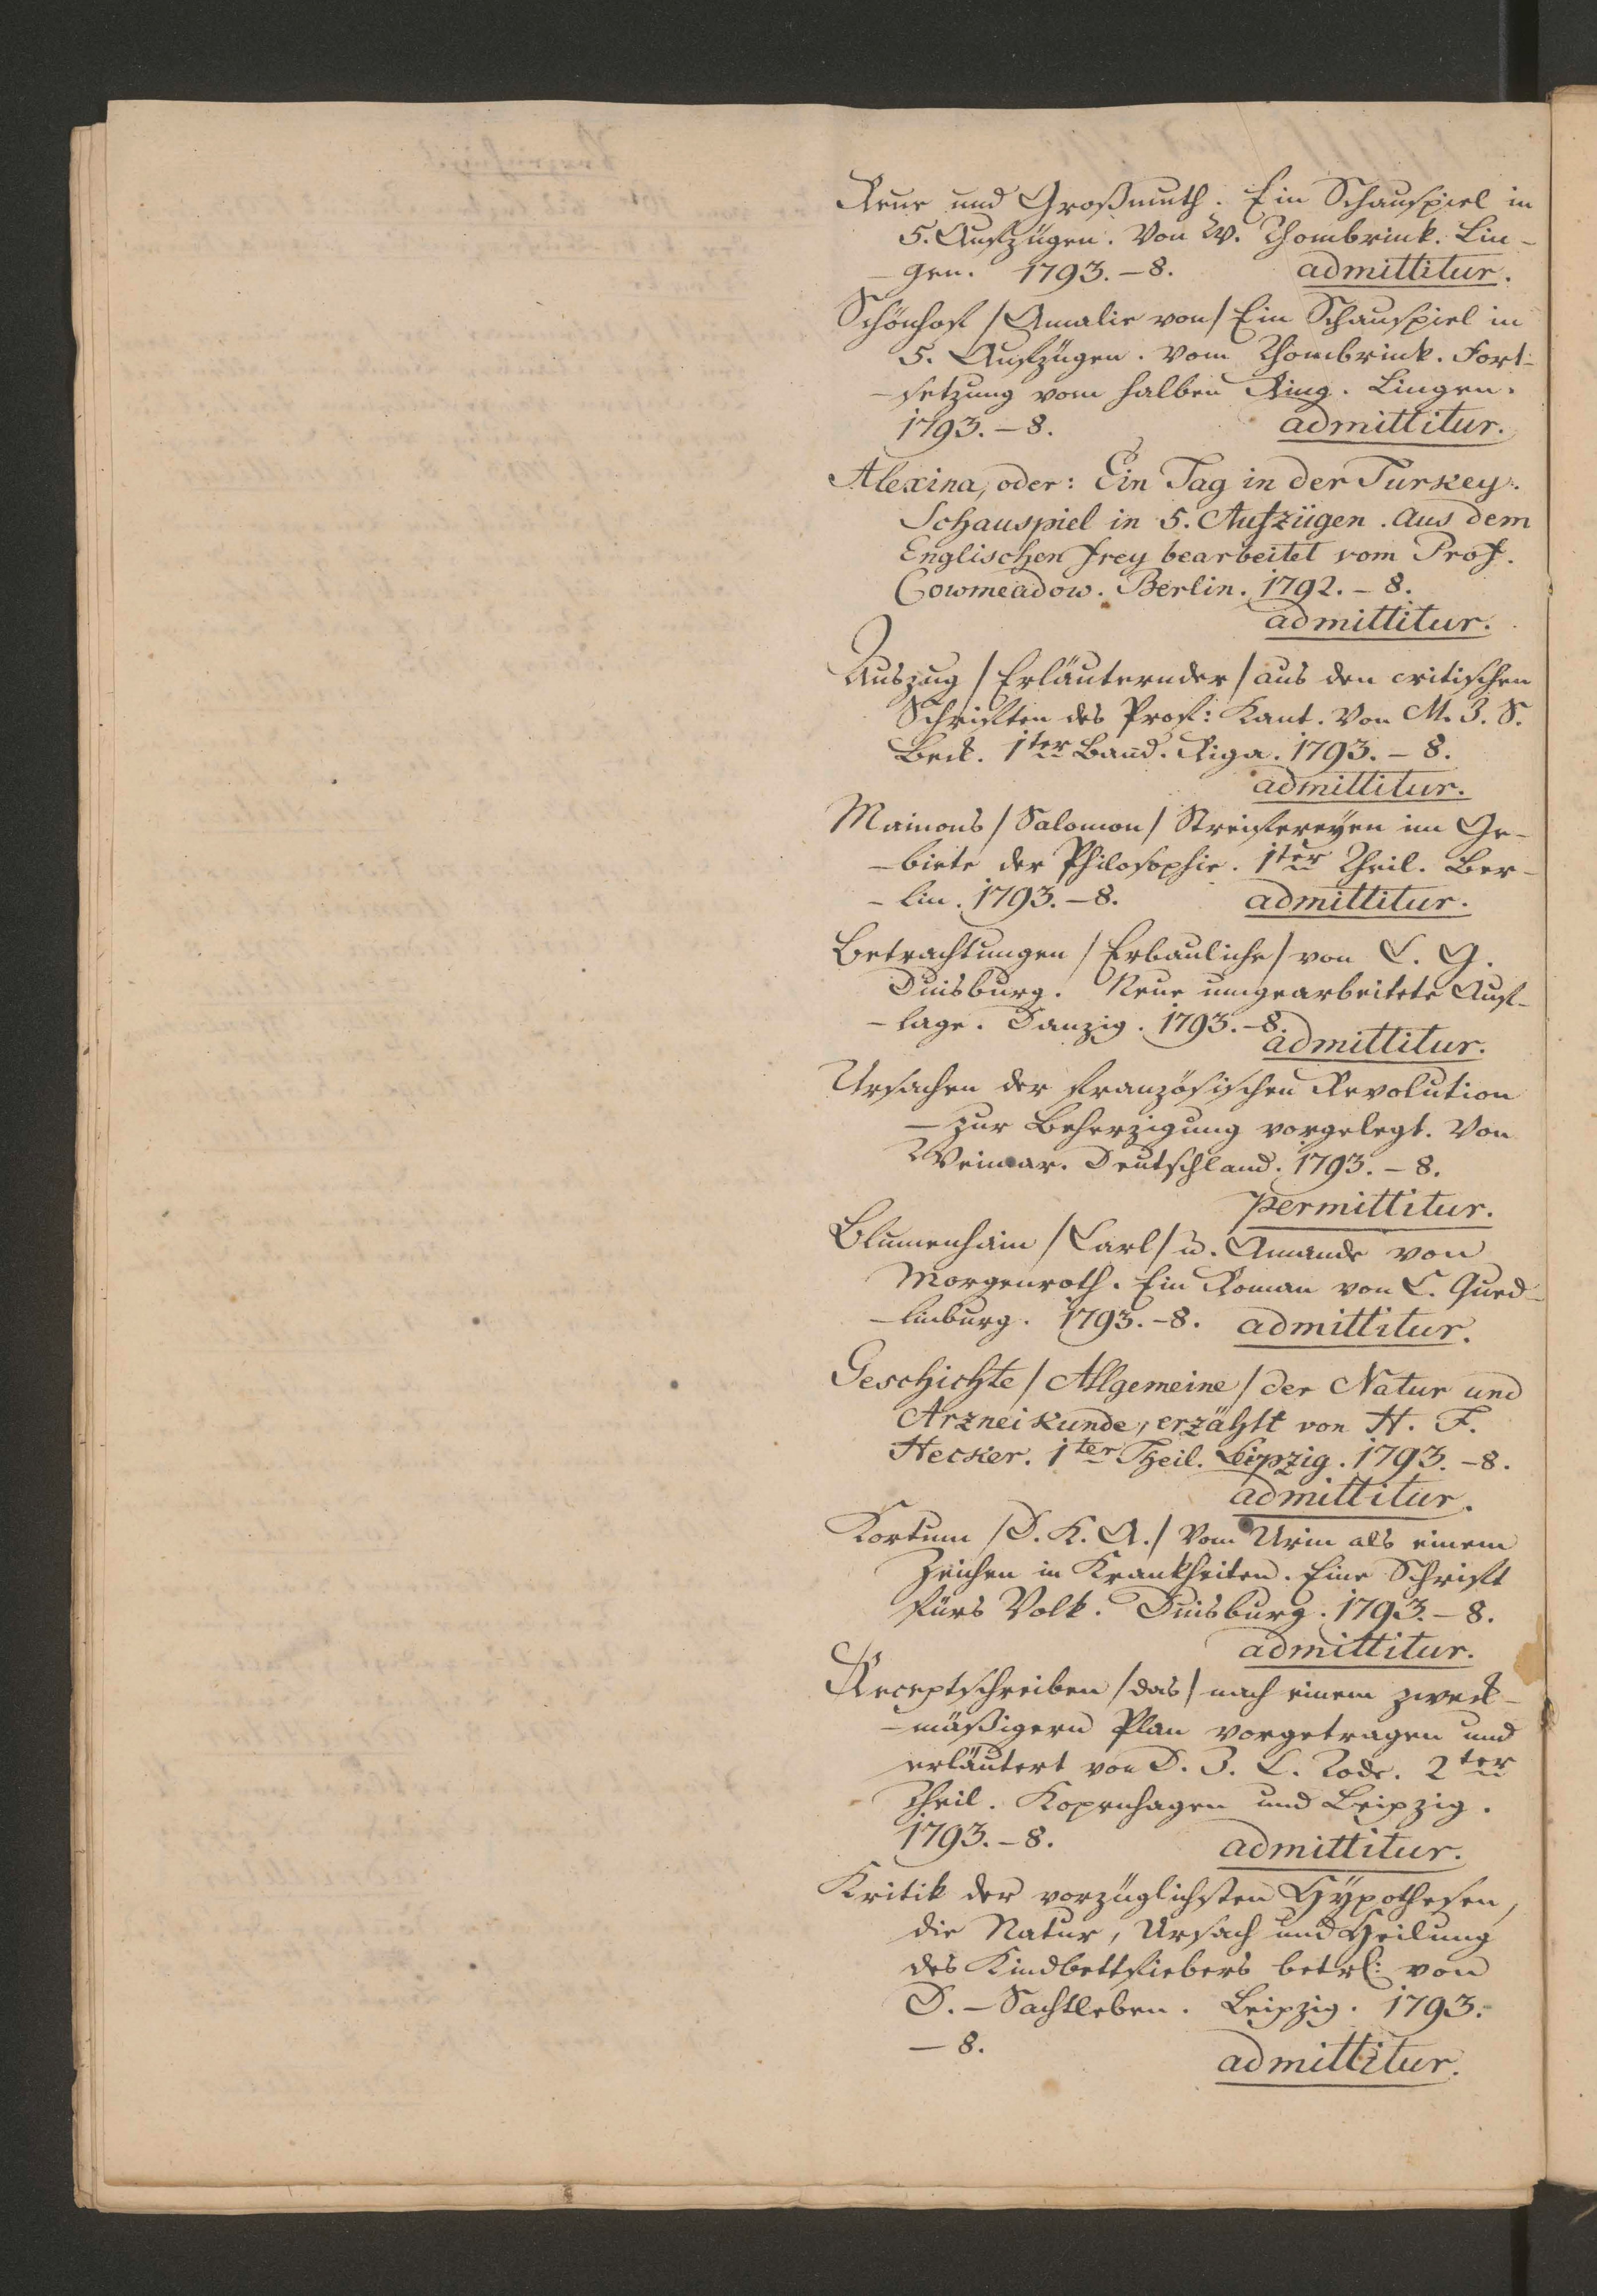 Reue und Großmuth. Ein Schauspiel in
5. Aufzügen. Von W. Thombrink. Lin-
-gen. 1793. – 8. admittitur.
Schönhof /Amalie von/ Ein Schauspiel in
5. Aufzügen. Vom Thombrink. Fort-
-setzung vom halben Ring. Lingen.
1793. – 8. admittitur.
Alexina, oder: Ein Tag in der Turkey.
Schauspiel in 5. Aufzügen. Aus dem
Englischen frey bearbeitet vom Prof.
Cowmeadow. Berlin. 1792. – 8.
admittitur.
Auszug /Erläuternder/ aus den critischen
Schriften des Prof: Kant. Von M. J. S.
Beck. 1ter Band. Riga. 1793. – 8.
admittitur.
Maimons /Salomon/ Streifereyen im Ge-
-biete der Philosophie. 1ter Theil. Ber-
-lin. 1793. – 8. admittitur.
Betrachtungen /Erbauliche/ von C. G.
Duisburg. Neue umgearbeitete Auf-
-lage. Danzig. 1793. – 8.
admittitur.
Ursachen der französischen Revolution
– zur Beherzigung vorgelegt. Von
Weimar. Deutschland. 1793. – 8.
permittitur.
Blumenhain /Carl/ u. Amande von
Morgenroth. Ein Roman von C. Qued-
-linburg. 1793. – 8. admittitur.
Geschichte /Allgemeine/ der Natur und
Arzneikunde, erzählt von H. F.
Hecker. 1ter Theil. Leipzig. 1793. – 8.
admittitur.
Kortum /D. K. A./ Vom Urin als einem
Zeichen in Krankheiten. Eine Schrift
fürs Volk. Duisburg. 1793. – 8.
admittitur.
Receptschreiben /das/ nach einem zweck-
-mäßigern Plan vorgetragen und
erläutert von D. J. C. Tode. 2ter
Theil. Kopenhagen und Leipzig.
1793. – 8. admittitur.
Kritik der vorzüglichsten Hypothesen,
die Natur, Ursach und Heilung
des Kindbettfiebers betrf: von
D. – Sachtleben. Leipzig. 1793.
– 8.
admittitur.